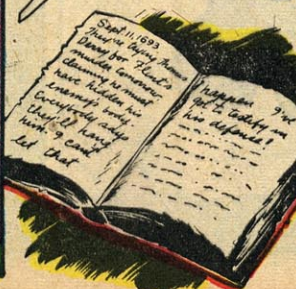 Sept. 11, 1693
They're trying Thomas
Derry for Flent's
murder tomorrow
claiming he must
have hidden his
enemy's body
Everybody says
they'll hang
him I can't
let that
happen I've
got to testify in
his defense!